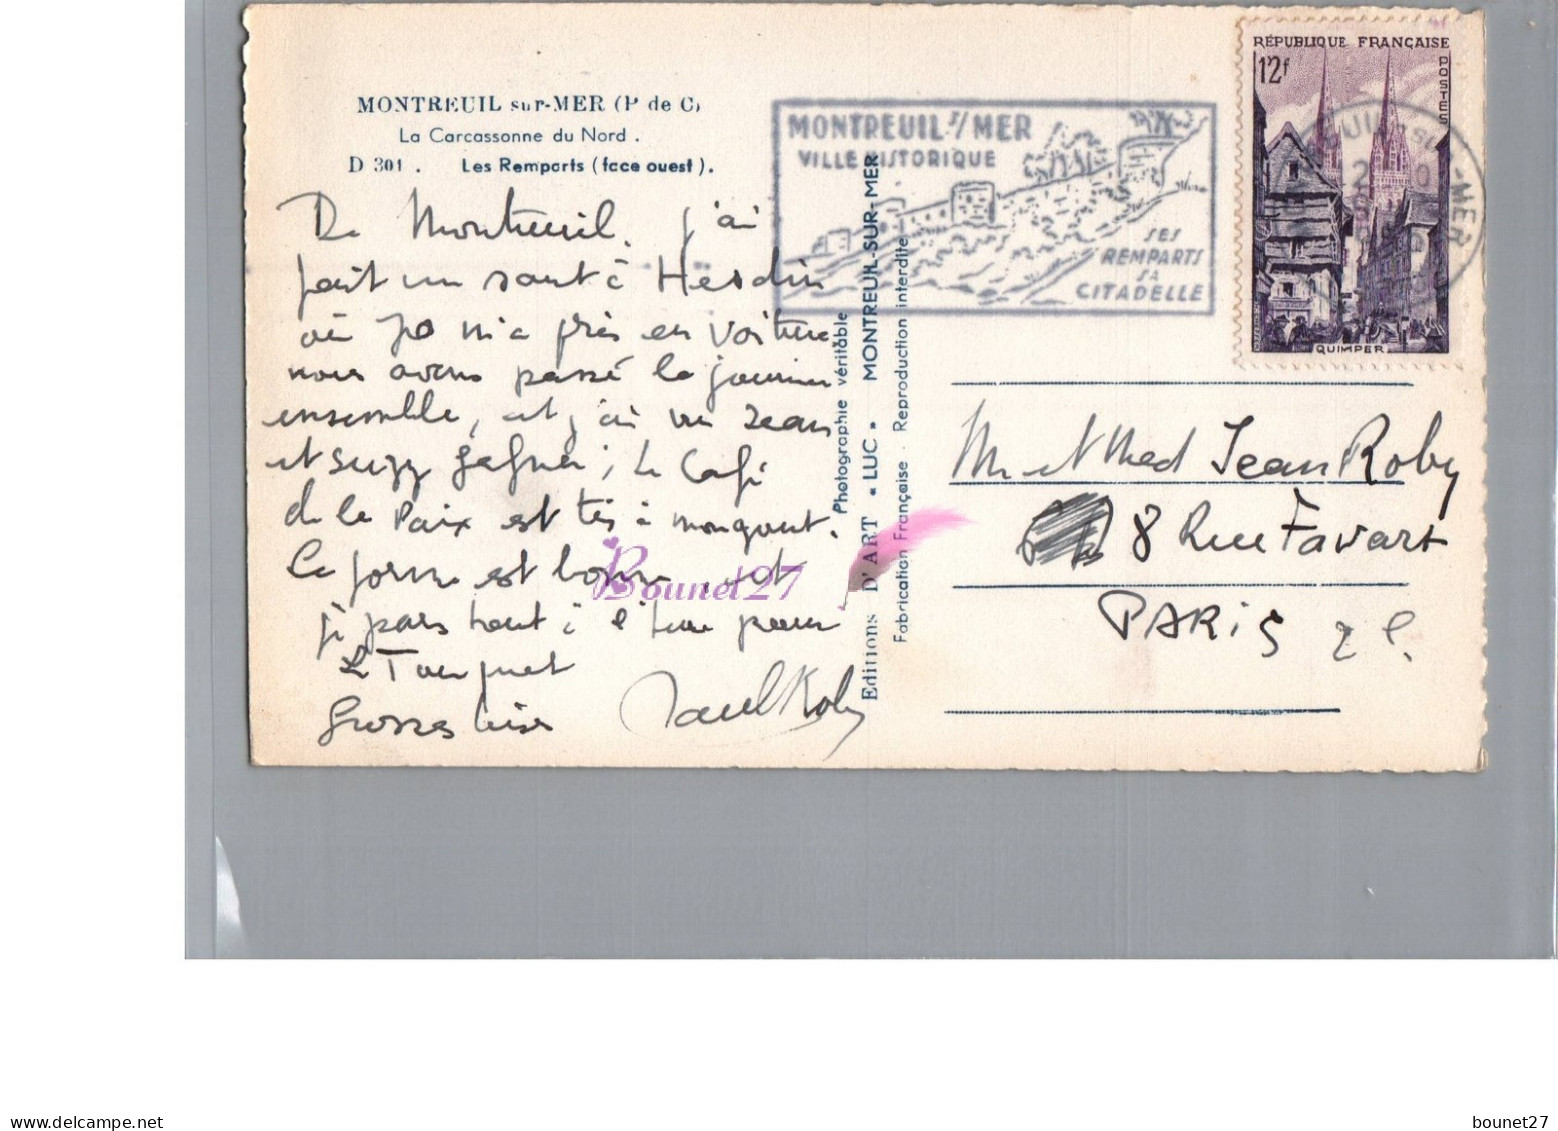 MONTREUIL sur-MER (P de C)
La Carcassonne du Nord .
D 301 . Les Remparts (face ouest).
De Montreuil, j'ai
fait un saut à Hesdin
où Jo m'a pris en voiture
nous avons passé la journée
ensemble, et j'ai vu Jean
et Suzy ; le Café
de la Paix est très à mon gout.
La forme est bonne, et
je pars tout à l'heure pour
Le Touquet
Grosses bises
Paul Roby
MONTREUIL S/ MER
VILLE HISTORIQUE
SES
REMPARTS
SA
CITADELLE
RÉPUBLIQUE FRANÇAISE
12f
POSTES
QUIMPER
UIL-SUR-MER
Photographie véritable
Editions D'ART "LUC" MONTREUIL-SUR-MER
Fabrication Française - Reproduction interdite
M et Mad Jean Roby
8 Rue Favart
PARIS 2e.
Bounet27
delcampe.net
bounet27